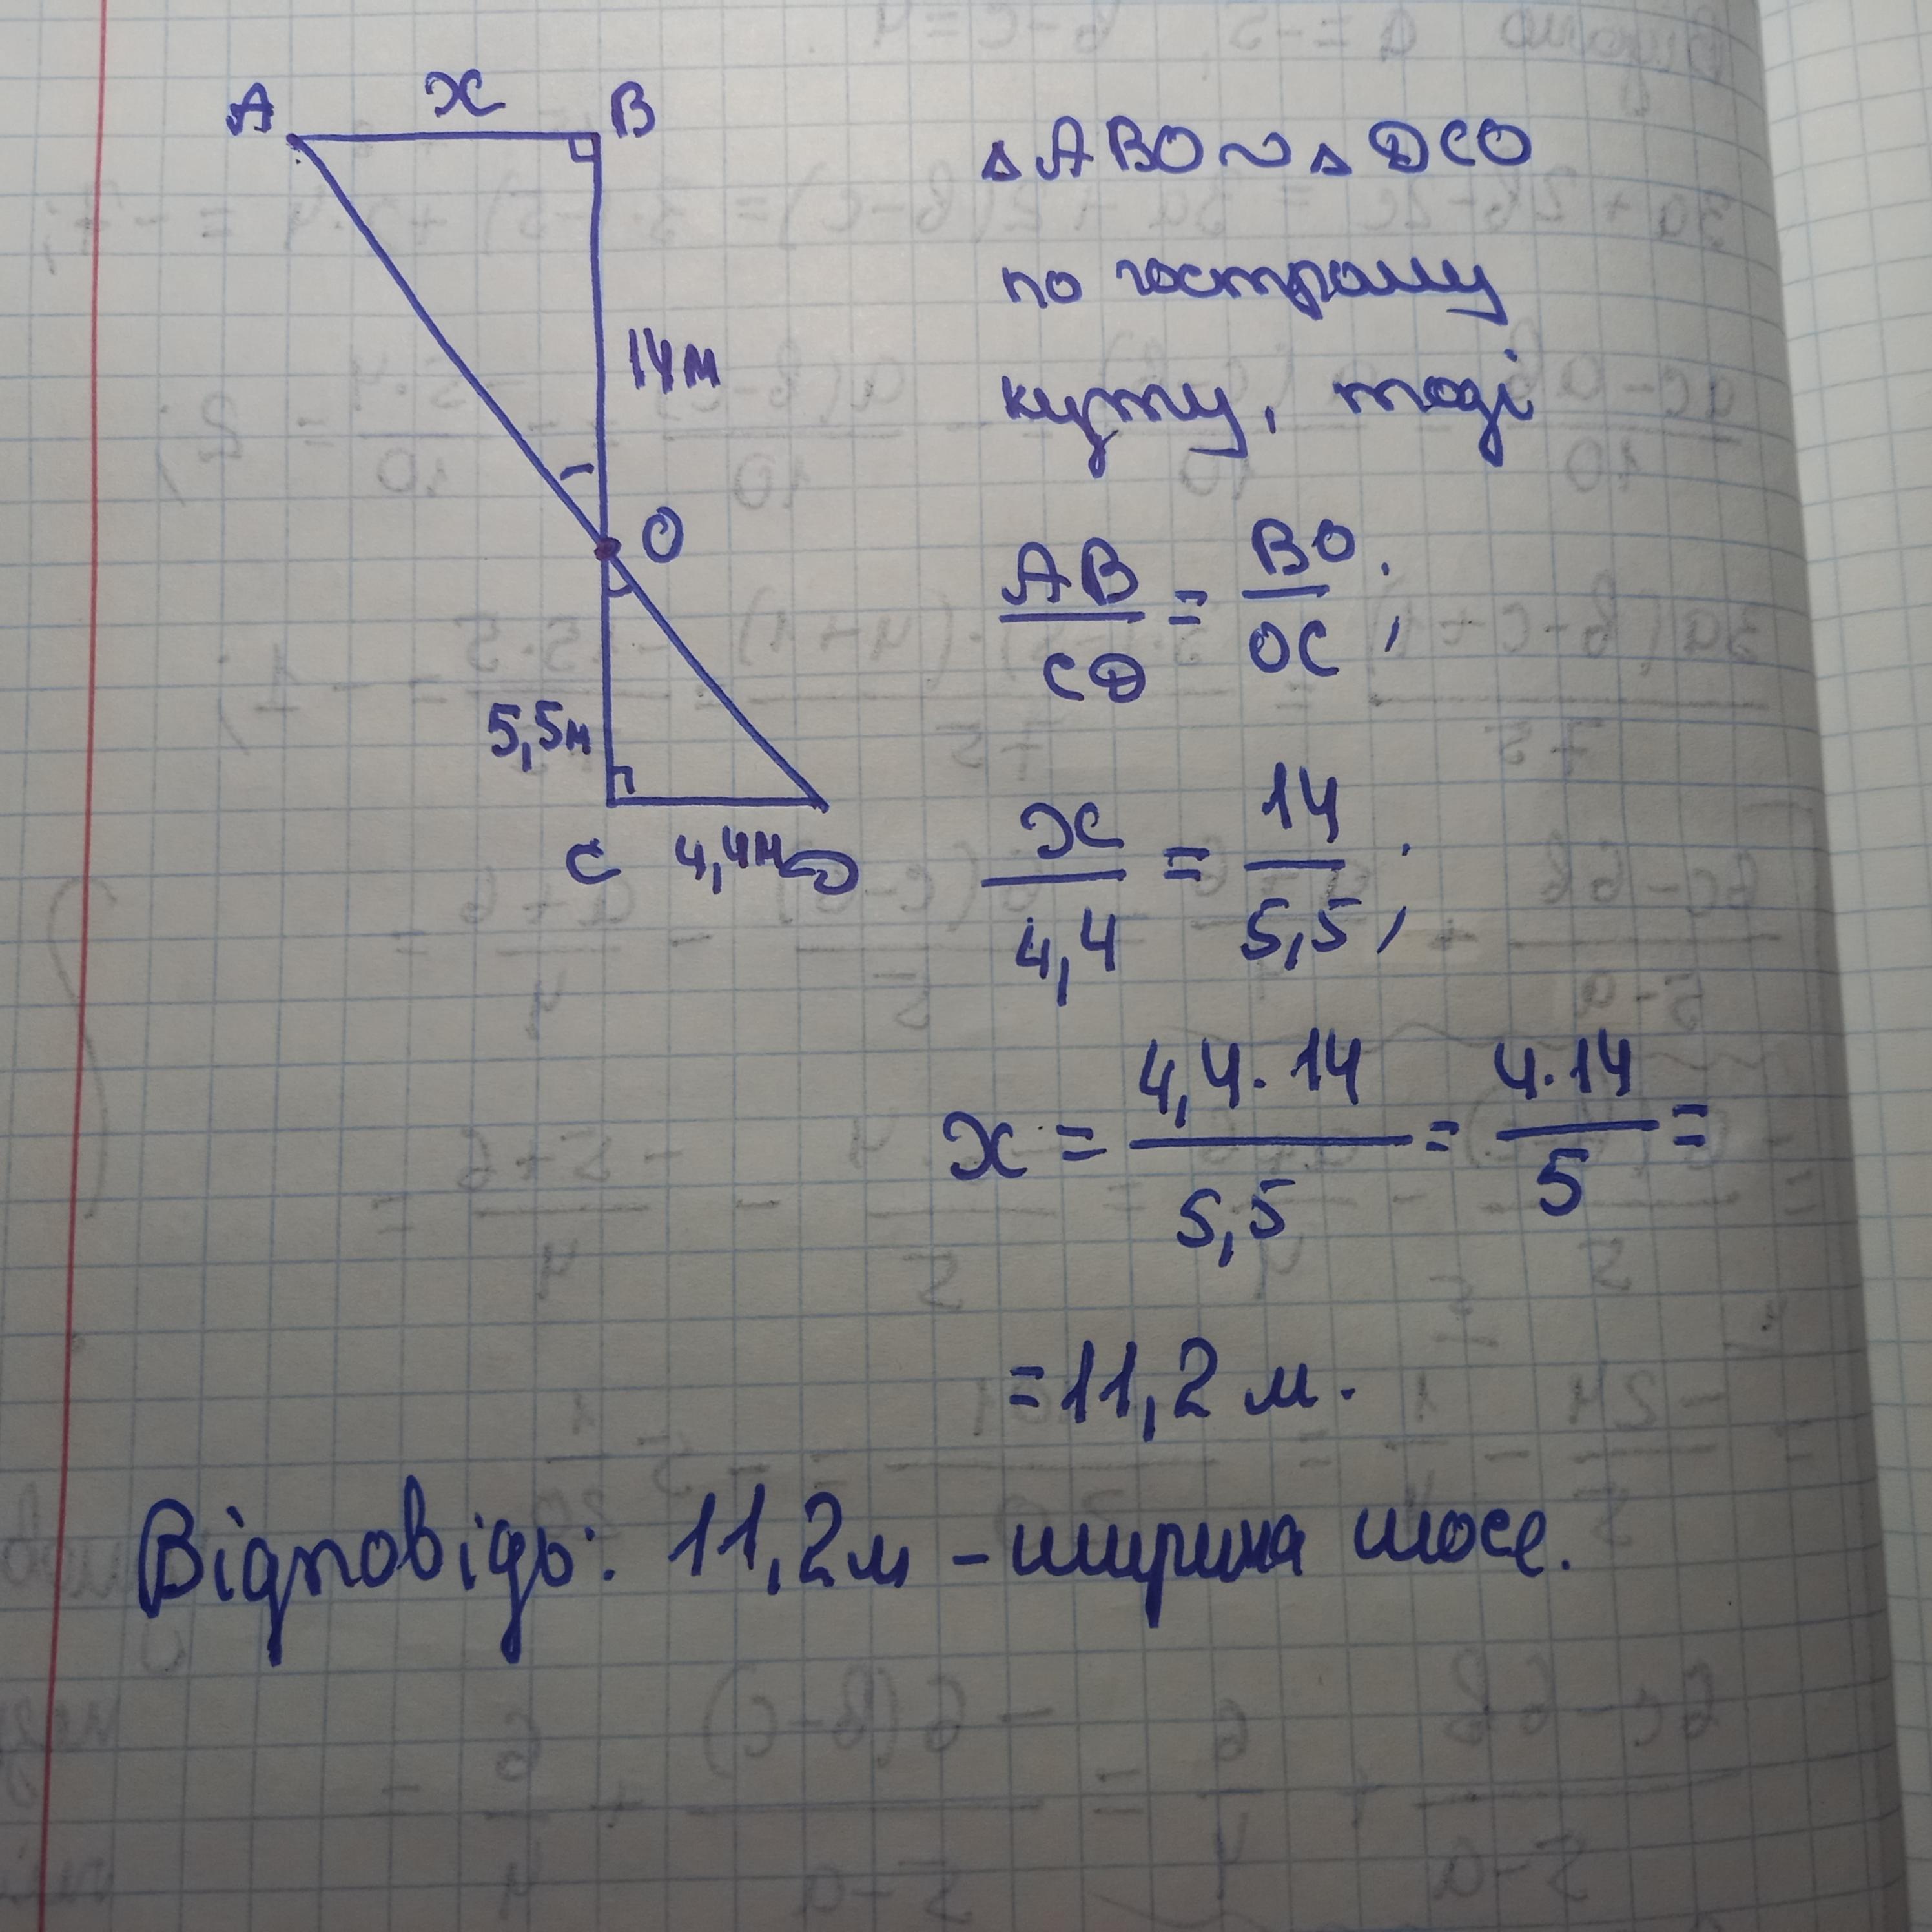 A x B
14м
O
5,5м
C 4,4м D
△ABO ~ △DCO
по гострому
куту, тоді
AB/CD = BO/OC;
x/4,4 = 14/5,5;
x = 4,4·14/5,5 = 4·14/5 =
= 11,2 м.
Відповідь: 11,2м – ширина шосе.